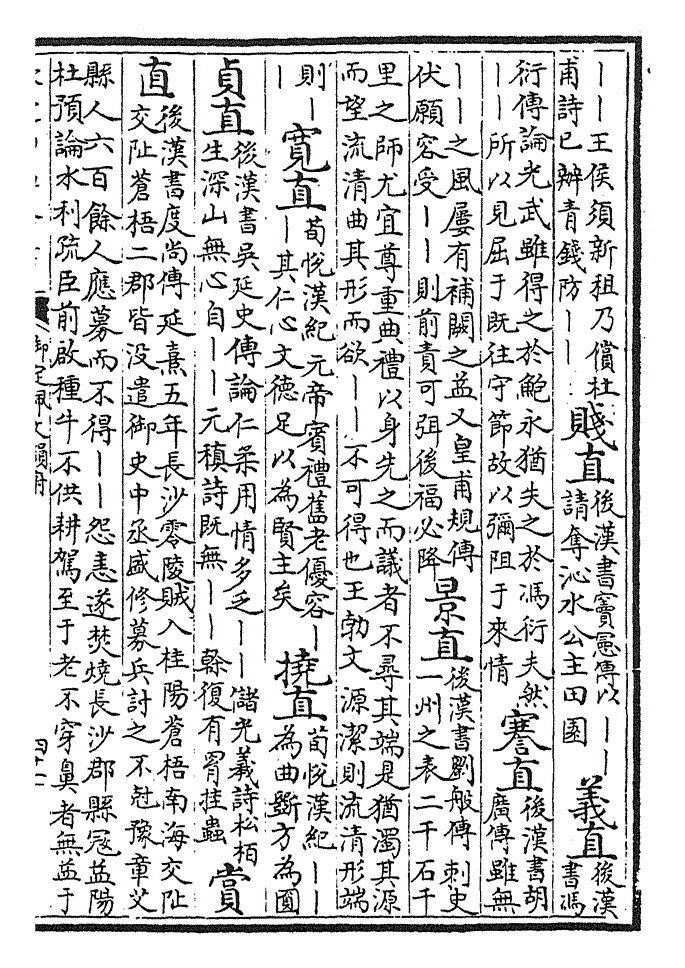 ｜｜王侯須新租乃償杜
甫詩已辦青錢防｜｜
賤直
後漢書竇憲傳以｜｜
請奪沁水公主田園
義直
後漢
書馮
衍傳論光武雖得之於鮑永猶失之於馮衍夫然
｜｜所以見屈于既往守節故以彌阻于來情
謇直
後漢書胡
廣傳雖無
｜｜之風屢有補闕之益又皇甫規傳
伏願容受｜｜則前責可弭後福必降
景直
後漢書劉般傳刺史
一州之表二千石千
里之師尤宜尊重典禮以身先之而議者不尋其端是猶濁其源
而望流清曲其形而欲｜｜不可得也王勃文 源潔則流清形端
則｜
｜
寬直
荀悅漢紀元帝賓禮舊老優容｜
｜其仁心文德足以為賢主矣
撓直
荀悅漢紀｜｜
為曲斲方為圓
貞直
後漢書吳延史傳論仁柔用情多乏｜｜儲光羲詩松柏
生深山無心自｜｜元稹詩既無｜｜榦復有罥挂蟲
賞
直
後漢書度尚傳延熹五年長沙零陵賊入桂陽蒼梧南海交阯
交阯蒼梧二郡皆沒遣御史中丞盛修募兵討之不尅豫章艾
縣人六百餘人應募而不得｜｜怨恚遂焚燒長沙郡縣冦益陽
杜預論水利疏臣前啟種牛不供耕駕至于老不穿鼻者無益于
御定佩文韻府